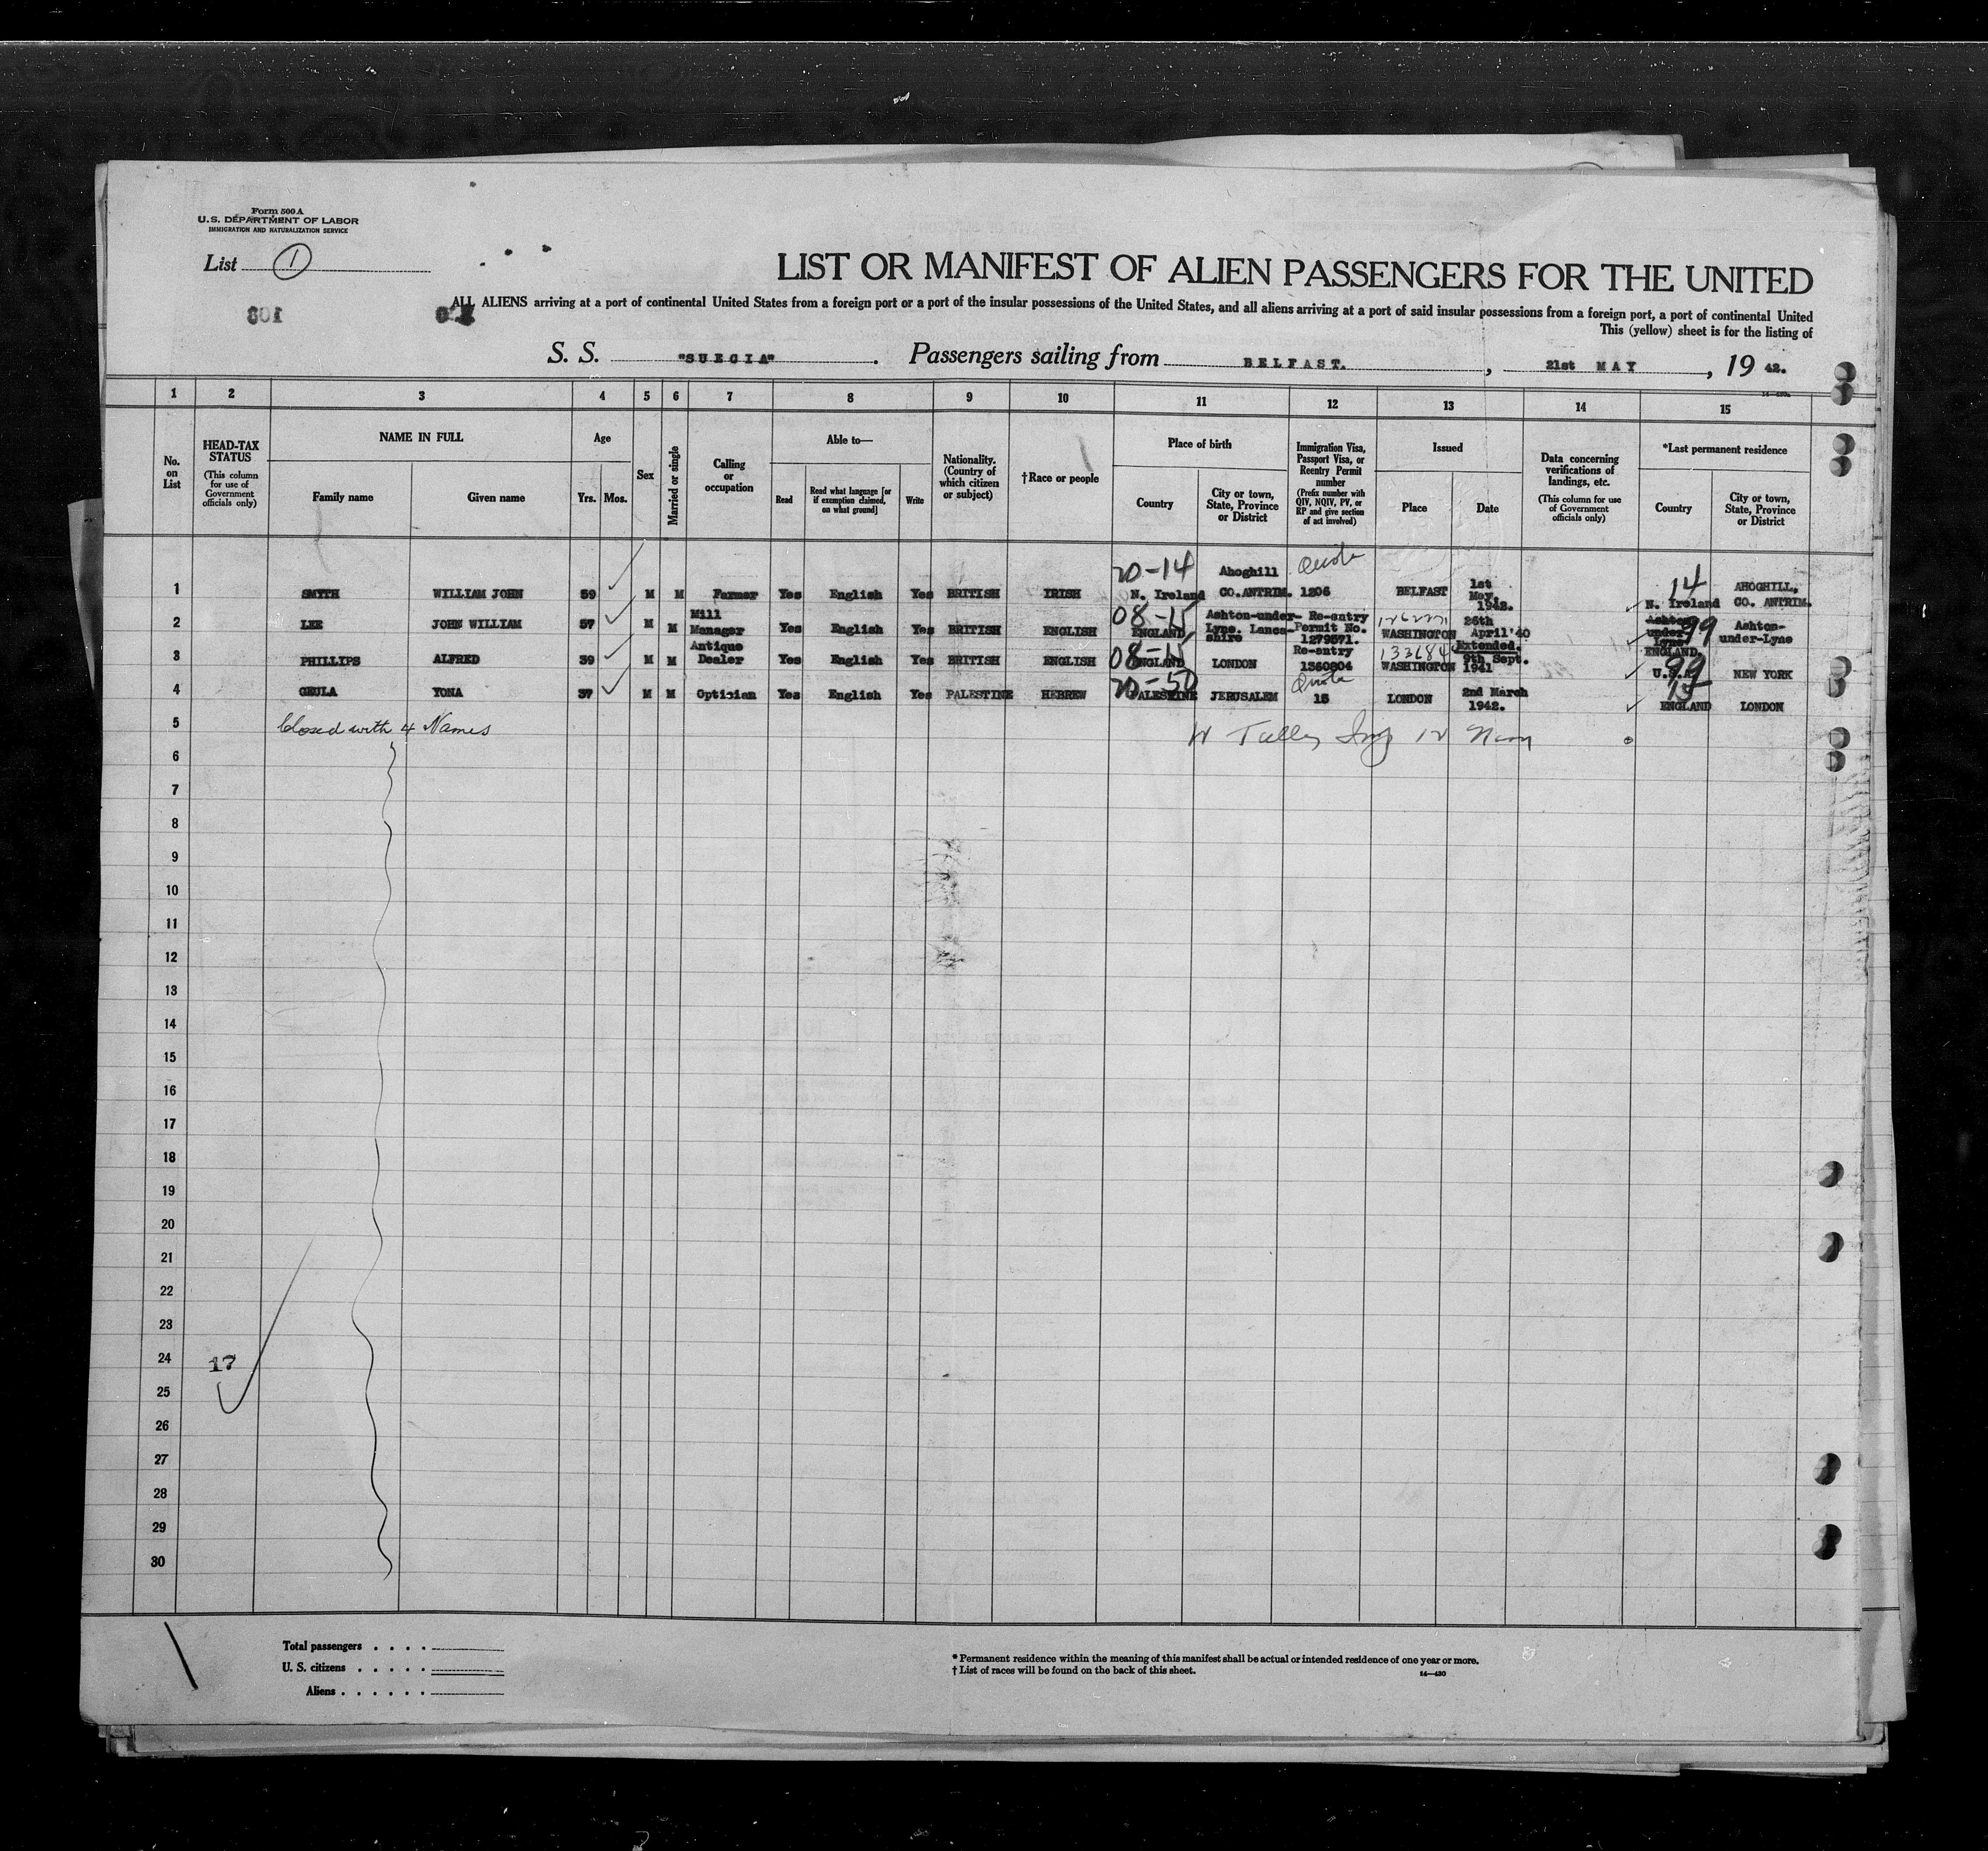 Form 500 A
U.S. DEPARTMENT OF LABOR
IMMIGRATION AND NATURALIZATION SERVICE
List 1
LIST OR MANIFEST OF ALIEN PASSENGERS FOR THE UNITED
ALL ALIENS arriving at a port of continental United States from a foreign port or a port of the insular possessions of the United States, and all aliens arriving at a port of said insular possessions from a foreign port, a port of continental United
This (yellow) sheet is for the listing of
108
S. S. "SUECIA". Passengers sailing from BELFAST., 21st MAY, 19 42.
16—430a
1 2 3 4 5 6 7 8 9 10 11 12 13 14 15
No. on List
HEAD-TAX STATUS
(This column for use of Government officials only)
NAME IN FULL
Family name
Given name
Age
Yrs. Mos.
Sex
Married or single
Calling or occupation
Able to—
Read
Read what language [or if exemption claimed, on what ground]
Write
Nationality. (Country of which citizen or subject)
†Race or people
Place of birth
Country
City or town, State, Province or District
Immigration Visa, Passport Visa, or Reentry Permit number
(Prefix number with QIV, NQIV, PV, or RP and give section of act involved)
Issued
Place
Date
Data concerning verifications of landings, etc.
(This column for use of Government officials only)
*Last permanent residence
Country
City or town, State, Province or District
1 SMYTH WILLIAM JOHN 59 M M Farmer Yes English Yes BRITISH IRISH 20-14 N. Ireland Ahoghill CO. ANTRIM. Quota 1206 BELFAST 1st May, 1942. 14 N. Ireland AHOGHILL, CO. ANTRIM.
2 LEE JOHN WILLIAM 57 M M Mill Manager Yes English Yes BRITISH ENGLISH 08-15 ENGLAND, Ashton-under-Lyne. Lancashire Re-entry Permit No. 1279571. WASHINGTON 26th April'40 Extended. Ashton under Lyne 99 ENGLAND. Ashton-under-Lyne
3 PHILLIPS ALFRED 39 M M Antique Dealer Yes English Yes BRITISH ENGLISH 08-15 ENGLAND LONDON Re-entry 1360804 133684 WASHINGTON 9th Sept. 1941 99 U.S.A. NEW YORK
4 GEULA YONA 37 M M Optician Yes English Yes PALESTINE HEBREW 20-50 PALESTINE JERUSALEM Quota 15 LONDON 2nd March 1942. 15 ENGLAND LONDON
5 Closed with 4 Names
6
7
8
9
10
11
12
13
14
15
16
17
18
19
20
21
22
23
24 17
25
26
27
28
29
30
Total passengers . . . .
U. S. citizens . . . . .
Aliens . . . . . .
* Permanent residence within the meaning of this manifest shall be actual or intended residence of one year or more.
† List of races will be found on the back of this sheet.
14—430